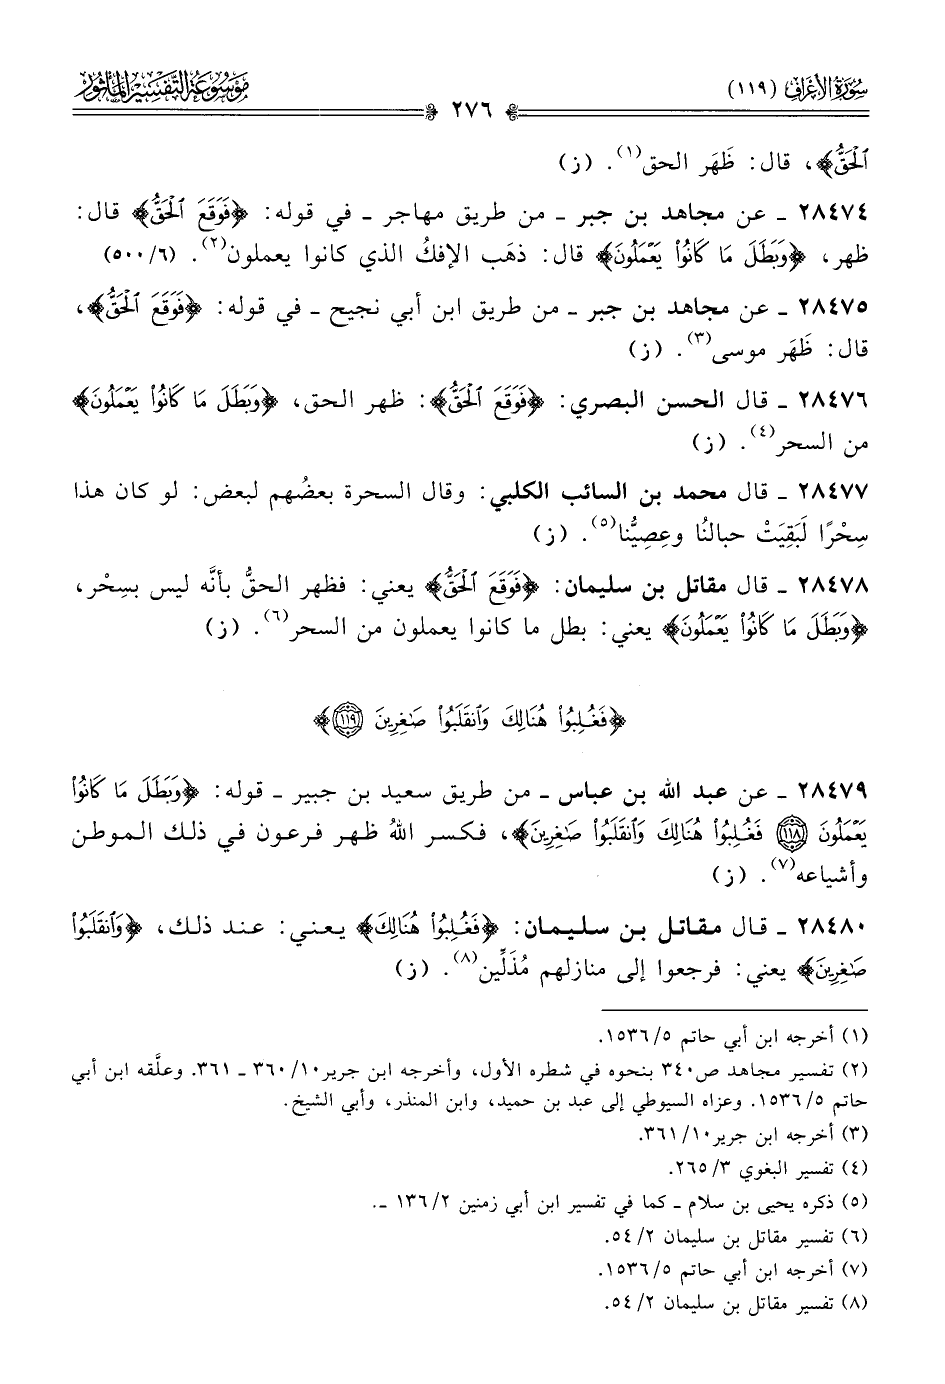 سُورَةُ الأَعْرَافِ (١١٩)
مَوْسُوعَةُ التَّفْسِيرِ المَأْثُورِ
٢٧٦
ٱلْحَقُّ﴾، قال: ظَهَر الحق(١). (ز)
٢٨٤٧٤ ـ عن مجاهد بن جبر ـ من طريق مهاجر ـ في قوله: ﴿فَوَقَعَ ٱلْحَقُّ﴾ قال:
ظهر، ﴿وَبَطَلَ مَا كَانُوا۟ يَعْمَلُونَ﴾ قال: ذهَب الإفكُ الذي كانوا يعملون(٢). (٥٠٠/٦)
٢٨٤٧٥ ـ عن مجاهد بن جبر ـ من طريق ابن أبي نجيح ـ في قوله: ﴿فَوَقَعَ ٱلْحَقُّ﴾،
قال: ظَهَر موسى(٣). (ز)
٢٨٤٧٦ ـ قال الحسن البصري: ﴿فَوَقَعَ ٱلْحَقُّ﴾: ظهر الحق، ﴿وَبَطَلَ مَا كَانُوا۟ يَعْمَلُونَ﴾
من السحر(٤). (ز)
٢٨٤٧٧ ـ قال محمد بن السائب الكلبي: وقال السحرة بعضُهم لبعض: لو كان هذا
سِحْرًا لَبَقِيَتْ حبالنُا وعِصِيُّنا(٥). (ز)
٢٨٤٧٨ ـ قال مقاتل بن سليمان: ﴿فَوَقَعَ ٱلْحَقُّ﴾ يعني: فظهر الحقُّ بأنَّه ليس بسِحْر،
﴿وَبَطَلَ مَا كَانُوا۟ يَعْمَلُونَ﴾ يعني: بطل ما كانوا يعملون من السحر(٦). (ز)
﴿فَغُلِبُوا۟ هُنَالِكَ وَٱنقَلَبُوا۟ صَٰغِرِينَ ١١٩﴾
٢٨٤٧٩ ـ عن عبد الله بن عباس ـ من طريق سعيد بن جبير ـ قوله: ﴿وَبَطَلَ مَا كَانُوا۟
يَعْمَلُونَ ١١٨ فَغُلِبُوا۟ هُنَالِكَ وَٱنقَلَبُوا۟ صَٰغِرِينَ﴾، فكسر اللهُ ظهر فرعون في ذلك الموطن
وأشياعه(٧). (ز)
٢٨٤٨٠ ـ قال مقاتل بن سليمان: ﴿فَغُلِبُوا۟ هُنَالِكَ﴾ يعني: عند ذلك، ﴿وَٱنقَلَبُوا۟
صَٰغِرِينَ﴾ يعني: فرجعوا إلى منازلهم مُذَلِّين(٨). (ز)
(١) أخرجه ابن أبي حاتم ١٥٣٦/٥.
(٢) تفسير مجاهد ص٣٤٠ بنحوه في شطره الأول، وأخرجه ابن جرير ٣٦٠/١٠ ـ ٣٦١. وعلَّقه ابن أبي
حاتم ١٥٣٦/٥. وعزاه السيوطي إلى عبد بن حميد، وابن المنذر، وأبي الشيخ.
(٣) أخرجه ابن جرير ٣٦١/١٠.
(٤) تفسير البغوي ٢٦٥/٣.
(٥) ذكره يحيى بن سلام ـ كما في تفسير ابن أبي زمنين ١٣٦/٢ ـ.
(٦) تفسير مقاتل بن سليمان ٥٤/٢.
(٧) أخرجه ابن أبي حاتم ١٥٣٦/٥.
(٨) تفسير مقاتل بن سليمان ٥٤/٢.